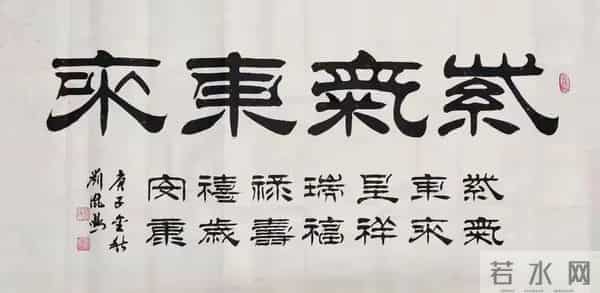 紫氣東來
紫氣
東來
呈祥
瑞福
禄壽
禧歲
安康
庚子金秋
若水网